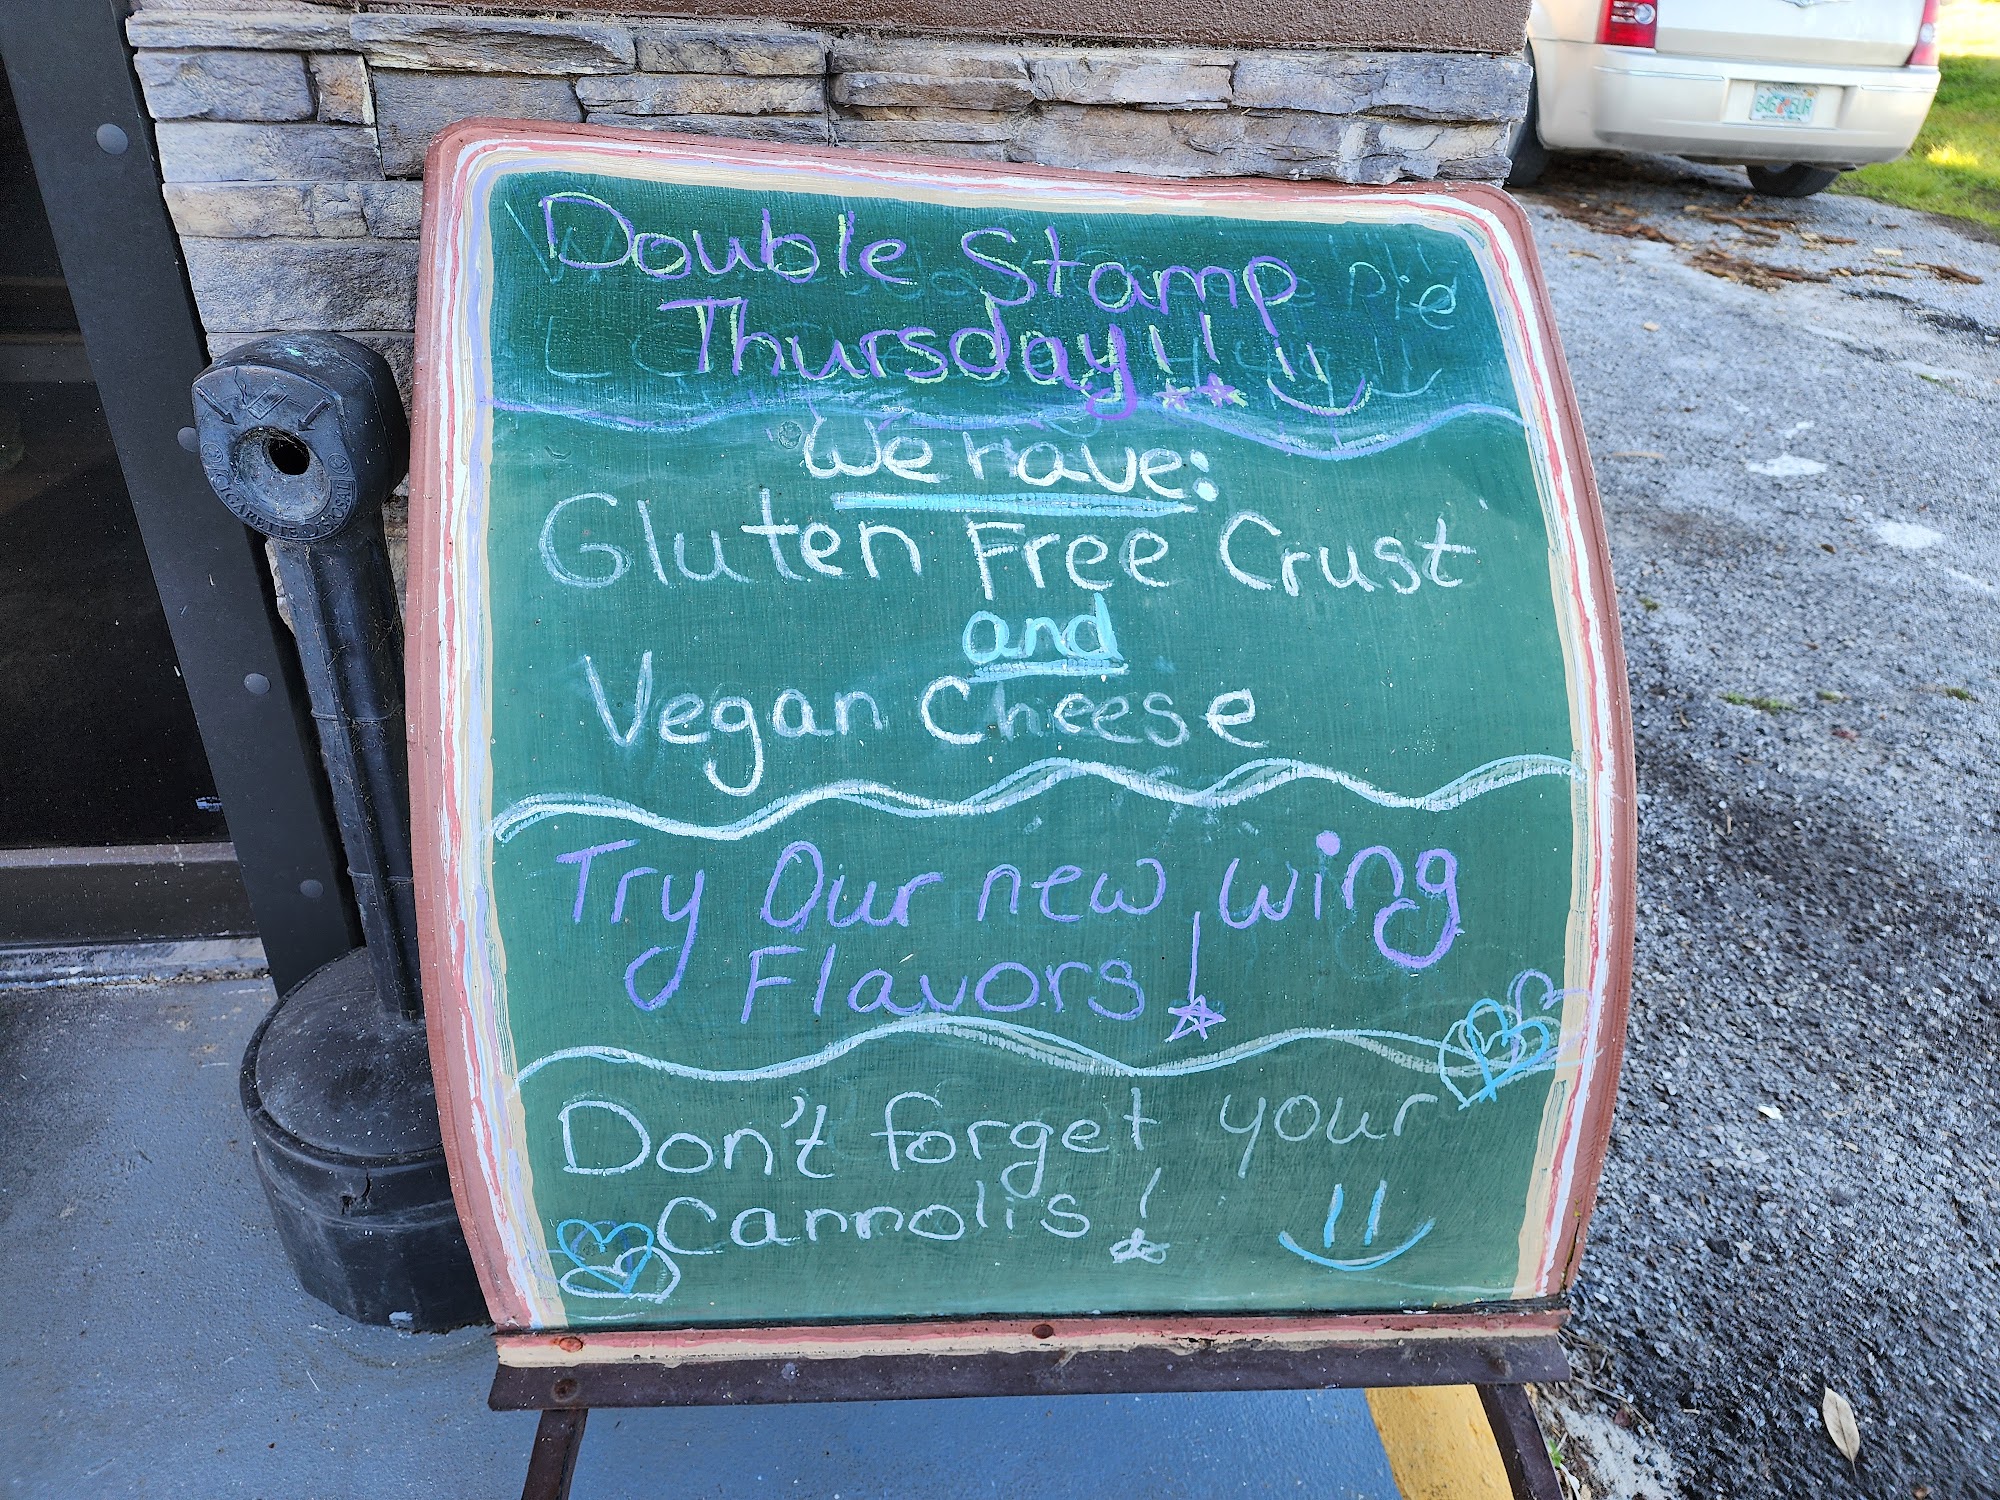 Double Stamp
Thursday!!
We have:
Gluten Free Crust
and
Vegan Cheese
Try Our new wing
Flavors!
Don't forget your
Cannolis!
CIGARETTE DISPOSAL